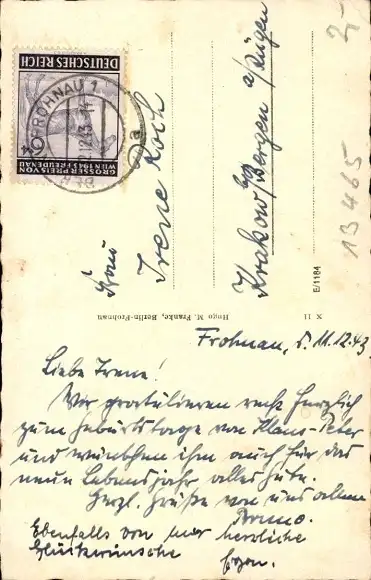 DEUTSCHES REICH
GROSSER PREIS VON
WIEN 1943 FREUDENAU
FROHNAU 1
12.43
a
Frau
Irene Koch
Krakow/Bergen a/Rügen
2,-
13465
E/1184
X 11
Hugo M. Franke, Berlin-Frohnau
Frohnau, d. 11.12.43.
Liebe Irene!
Wir gratulieren recht herzlich
zum Geburtstage von Klaus-Peter
und wünschen ihm auch für das
neue Lebensjahr alles Gute.
Herzl. Grüße von uns allen
Bruno.
Ebenfalls von mir herzliche
Glückwünsche